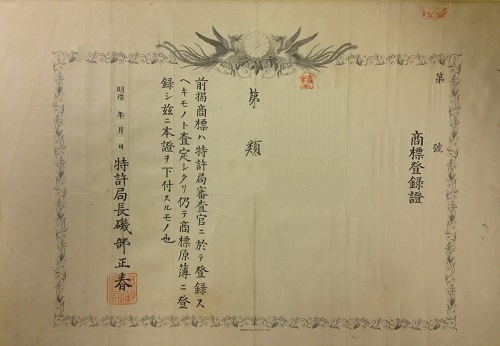 第　號
商標登録證
第　類
前揭商標ハ特許局審査官ニ於テ登録ス
ヘキモノト査定シタリ仍テ商標原簿ニ登
録シ茲ニ本證ヲ下付スルモノ也
明治　年　月　日
特許局長磯部正春